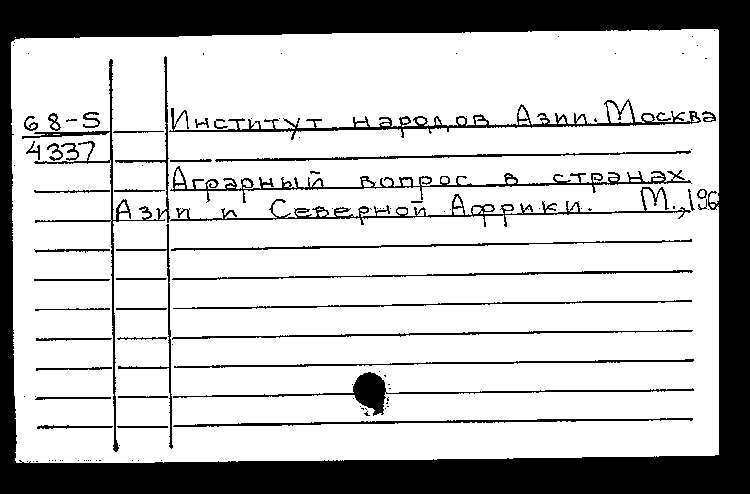 68-S Институт народов Азии. Москва
4337
Аграрный вопрос в странах
Азии и Северной Африки. М.,